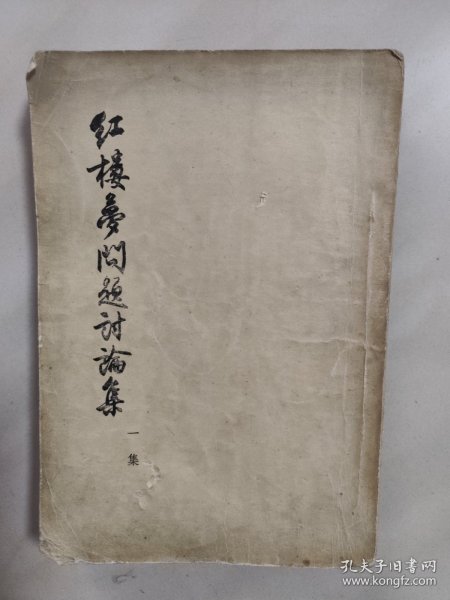 红樓夢問題討論集
一集
孔夫子旧书网
www.kongfz.com